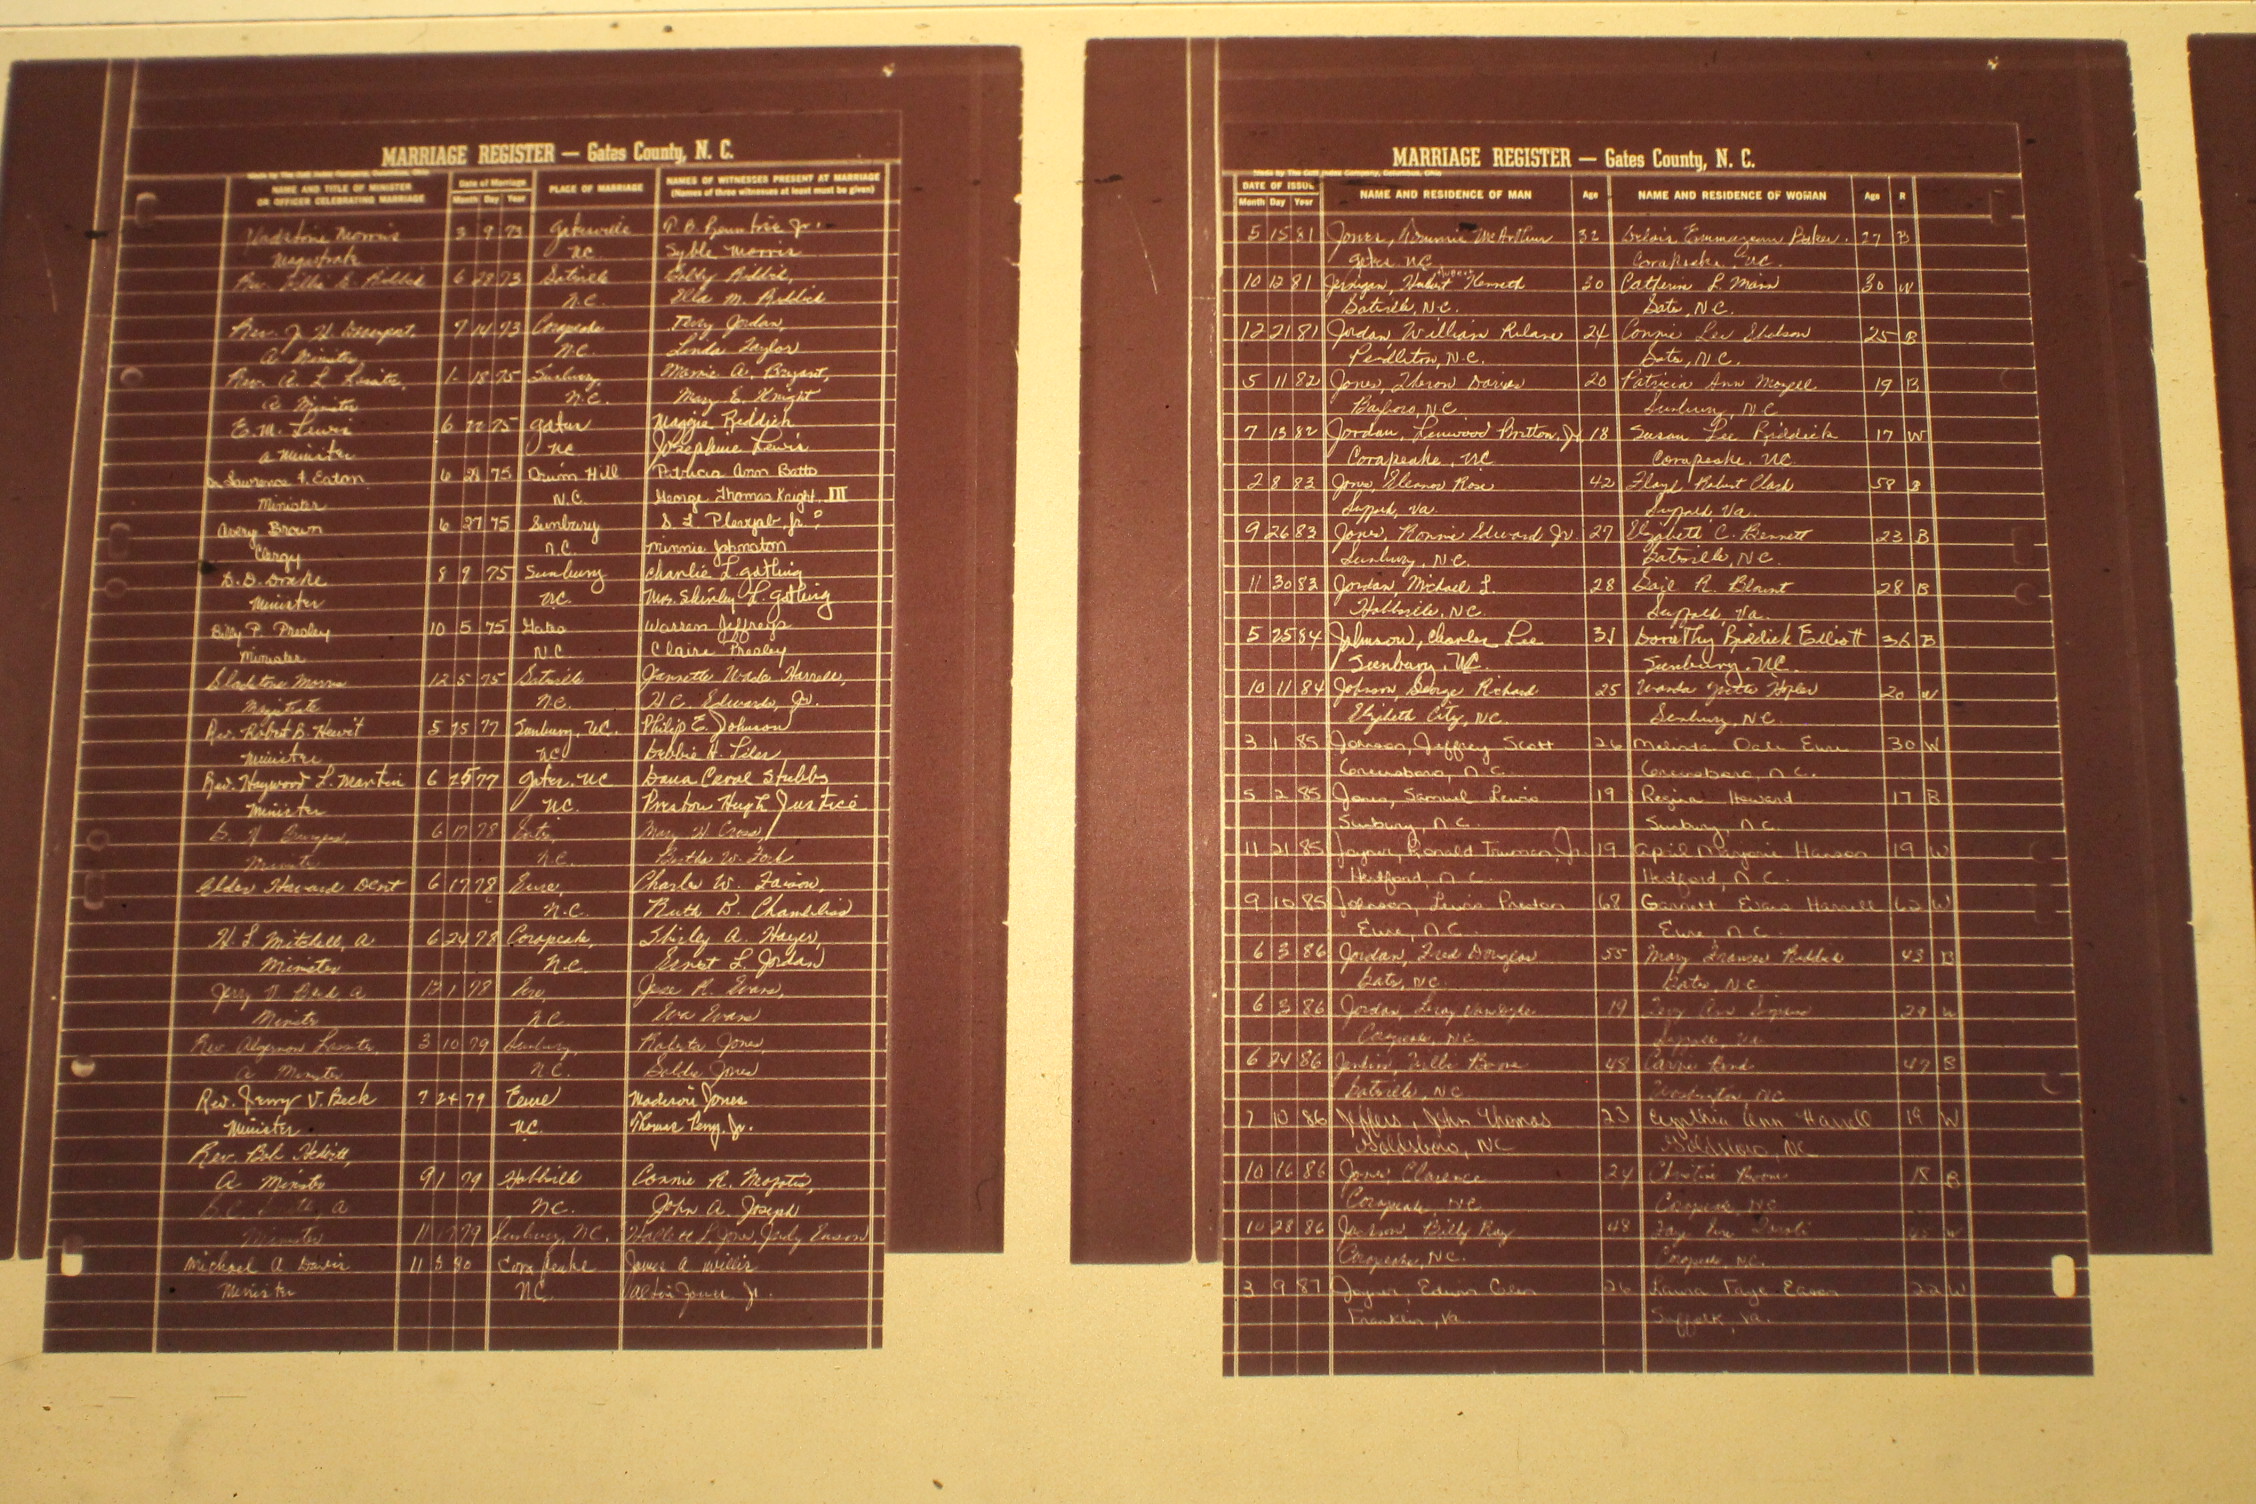 MARRIAGE REGISTER — Gates County, N. C.
NAME AND TITLE OF MINISTER OR OFFICER CELEBRATING MARRIAGE Date of Marriage Month Day Year PLACE OF MARRIAGE NAMES OF WITNESSES PRESENT AT MARRIAGE (Names of three witnesses at least must be given)
Gladstone Morris 3 9 73 Gatesville Jr.
Magistrate NC Syble Morris
Rev. 6 28 73 Gatesville Riddick,
N.C. Ella M. Riddick
Rev. J. H. 7 14 73 Corapeake Terry Jordan,
A Minister, N.C. Linda Taylor
Rev. A. L. 1- 18 75 Sunbury, Mamie A. Bryant,
A Minister N.C. Mary E. Knight
E. M. Lewis 6 22 75 Gates Maggie Riddick
a minister NC Josephine Lewis
Lawrence F. Eaton 6 21 75 Drum Hill Patricia Ann Batts
Minister N.C. George Thomas Knight, III
Avery Brown 6 27 75 Sunbury Jr.
Clergy N.C. Minnie Johnston
D. D. Drake 8 9 75 Sunbury Charlie L. Gatling
Minister NC. Mrs. Shirley L. Gatling
Billy P. Presley 10 5 75 Gates Warren Jeffreys
Minister N.C Claire Presley
Gladstone Morris 12 5 75 Gatesville Jannette Wade Harrell,
Magistrate N.C. H. C. Edwards, Jr.
Rev. Robert B. 5 15 77 Sunbury, NC. Philip E. Johnson
Minister NC Debbie H. Liles
Rev. Haywood L. Martin 6 25 77 Gates. NC Dana Carol Stubbs
Minister NC. Preston Hugh Justice
6 17 78 Mary H. Cross,
Minister N.C. Bertha W.
Elder Howard Dent 6 17 78 Eure, Charles W. Faison,
N.C. Ruth B.
H. L. Mitchell, A 6 24 78 Corapeake, Shirley A. Hayes,
Minister N.C. Ernest L. Jordan
Jerry V. Beck A 12 1 78 Eure, Jesse R. Evans,
Minister N.C Eva Evans
Rev. Algernon 3 10 79 Sunbury, Roberta Jones,
A Minister N.C. Jones
Rev. Jerry V. Beck 7 24 79 Eure Madison Jones
Minister NC. Thomas Perry, Jr.
Rev. Bob
A Minister 9 1 79 Hobbsville Connie R.
NC. John A. Joseph
Minister 11 17 79 Sunbury, NC. Hallett L. Jones, Judy Eason
Michael A Davis 11 5 80 Corapeake James A Willis
Minister NC. Jr.
MARRIAGE REGISTER — Gates County, N. C.
DATE OF ISSUE Month Day Year NAME AND RESIDENCE OF MAN Age NAME AND RESIDENCE OF WOMAN Age R
5 15 81 Jones, McArthur 32 Delois Emmagean 27 B
Gates NC Corapeake NC.
10 12 81 Jernigan, Hubert Kenneth 30 Catherin L. Mann 30 W
Gatesville, N.C. Gates, N.C.
12 21 81 Jordan, William 24 Connie Lee 25 B
Pendleton, N.C. Gates, N.C.
5 11 82 Jones, Theron Darius 20 Patricia Ann 19 B
Bayboro, N.C Sunbury, N.C
7 13 82 Jordan, Linwood Britton, Jr 18 Susan Lee Riddick 17 W
Corapeake, NC Corapeake, NC
2 8 83 Jones, Eleanor Rose 42 Floyd Robert Clark 58 B
Suffolk, Va. Suffolk, Va.
9 26 83 Jones, Ronnie Edward Jr. 27 Elizabeth C. Bennett 23 B
Sunbury, N.C. Gatesville, N.C.
11 30 83 Jordan, Michael L. 28 Gail R. Blount 28 B
Hobbsville, N.C. Suffolk, Va.
5 25 84 Johnson, Charles Lee 31 Dorothy Riddick Elliott 36 B
Sunbury, NC. Sunbury, NC.
10 11 84 Johnson, George Richard 25 Wanda 20 W
Elizabeth City, NC. Sunbury, N.C.
3 1 85 Jeffrey Scott 26 Eure 30 W
Greensboro, N.C. Greensboro, N.C.
5 2 85 Jones, Samuel Lewis 19 Regina Howard 17 B
Sunbury, N.C. Sunbury, N.C.
11 21 85 Joyner, Ronald Truman, Jr. 19 April Marjorie Hanson 19 W
Hertford, N.C. Hertford, N.C.
9 10 85 Johnson, Lewis Preston 68 Garnett Evans Harrell 62 W
Eure, N.C. Eure N.C.
6 3 86 Jordan, Fred Douglas 55 Mary Frances Riddick 43 B
Gates, N.C. Gates, N.C
6 3 86 Jordan, Leroy 19 Ann 29 W
Corapeake, N.C. Suffolk, Va
6 24 86 Jenkins, Willie Boone 48 Carrie 47 B
Gatesville, N.C Washington, N.C
7 10 86 Jeffers, John Thomas 23 Cynthia Ann Harrell 19 W
Goldsboro, NC Goldsboro, NC
10 16 86 Jones, Clarence 24 Christine 18 B
Corapeake, N.C Corapeake, N.C
10 28 86 Jackson, Billy Ray 48 Faye 45 W
Corapeake, N.C. Corapeake, N.C.
3 9 87 Joyner, Edwin Glen 26 Laura Faye Eason 22 W
Franklin, Va. Suffolk, Va.